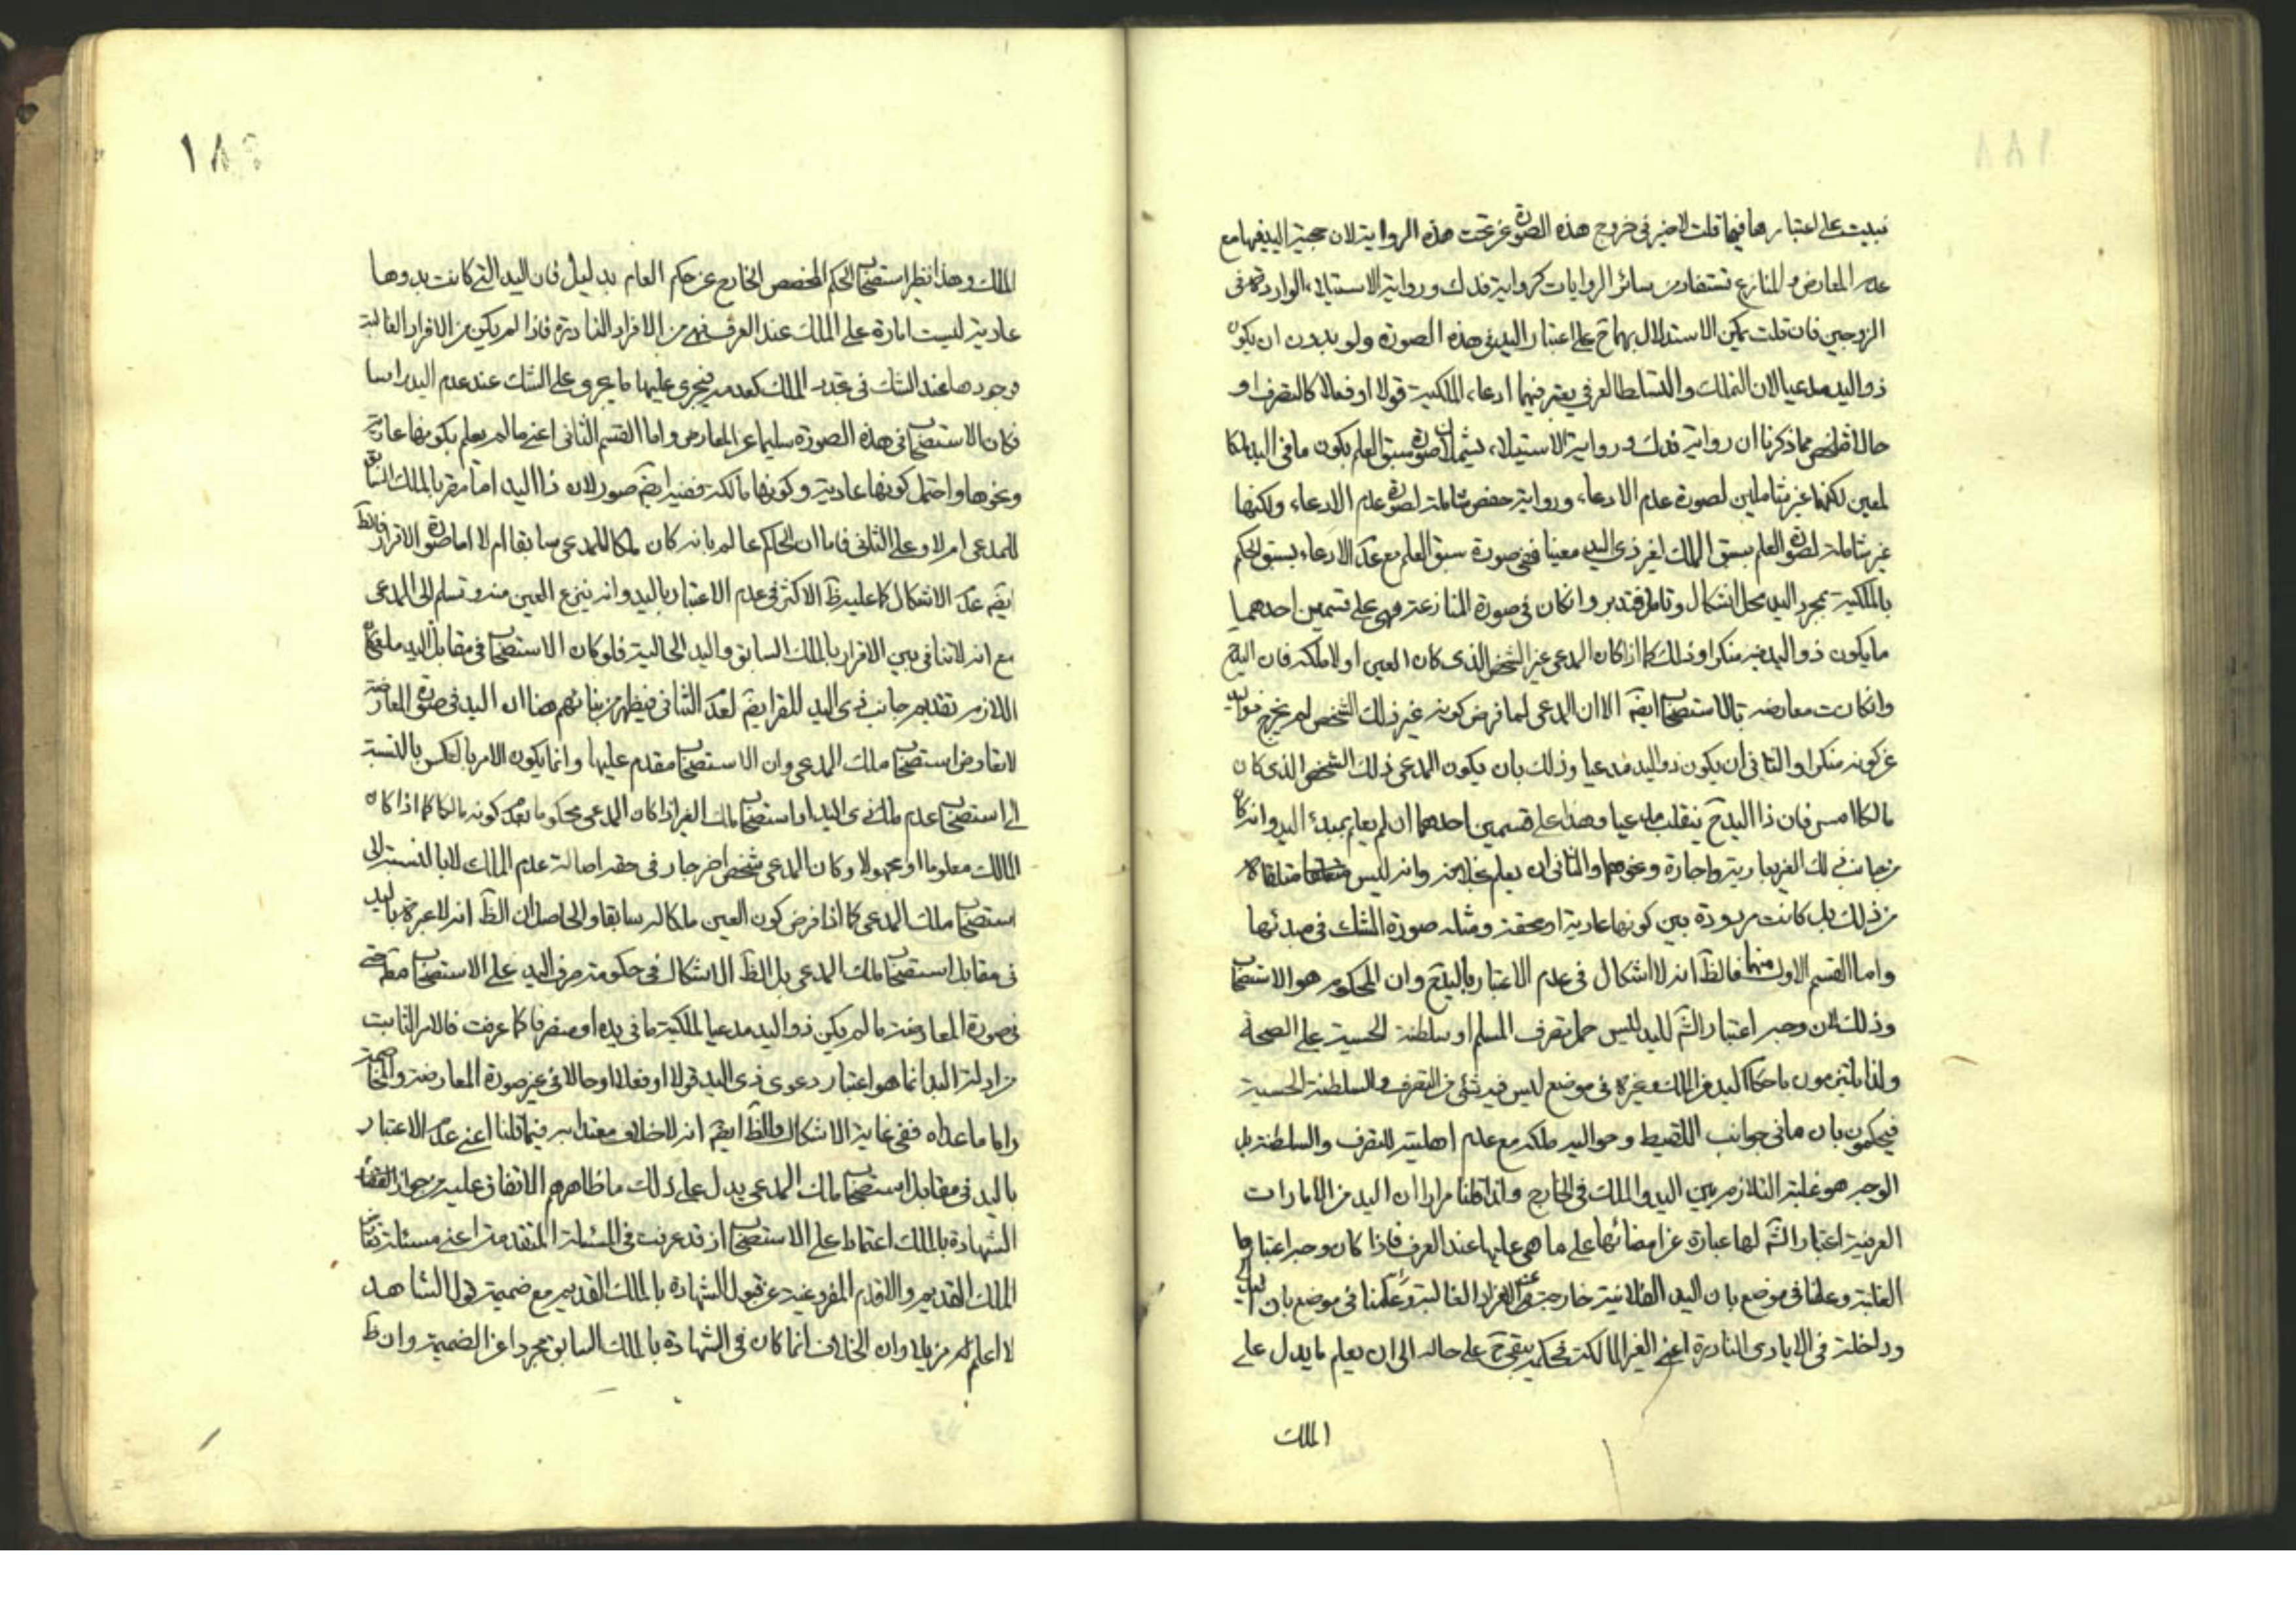 نبيت على اعتبارها فيما قلت لا ضير في خروج هذه الصورة عن تحت هذه الرواية لان حجية اليد فيها مع
عدم المعارض والمنازع تستفاد من سائر الروايات كرواية فدك ورواية الاستيلاء الواردة في
الزوجين فان قلت يمكن الاستدلال بهما ح على اعتبار اليد في هذه الصورة ولو بدون ان يكون
ذو اليد مدعيا لان التملك والتسلط العرفي يعتبر فيهما ادعاء الملكية قولا او فعلا كالتصرف او
حالا مما ذكرنا ان رواية فدك ورواية الاستيلاء يشملان صورة سبق العلم بكون ما في اليد ملكا
لمعين لكنهما غير شاملين لصورة عدم الادعاء ورواية حفص شاملة لصورة عدم الادعاء ولكنها
غير شاملة لصورة العلم بسبق الملك لغير ذي اليد معينا ففي صورة سبق العلم مع عدم الادعاء يسبق الحكم
بالملكية بمجرد اليد محل اشكال وتامل فتدبر وان كان في صورة المنازعة فهي على قسمين احدهما
ما يكون ذو اليد فيه منكرا وذلك كما اذا كان المدعى غير الشخص الذي كان العين اولا ملكه فان اليد ح
وان كانت معارضة بالاستصحاب ايضا الا ان المدعى لما فرض كونه غير ذلك الشخص لم يخرج ذو اليد
عن كونه منكرا والثاني ان يكون ذو اليد مدعيا وذلك بان يكون المدعى ذلك الشخص الذي كان
مالكا امس فان ذا اليد ح ينقلب مدعيا وهذا على قسمين احدهما ان لم يعلم بمبدء اليد وانه كان
من جانب ذلك الغير بعارية واجارة ونحوهما والثاني ان يعلم بخلافه وانه ليس متلقاة
من ذلك بل كانت مرددة بين كونها عادية او محقة ومثله صورة الشك في مبدئها
واما القسم الاول منهما فالظ انه لا اشكال في عدم الاعتبار باليد ح وان المحكوم هو الاستصحاب
وذلك لان وجه اعتبار الشم لليد ليس حمل تصرف المسلم او سلطنة الحسية على الصحة
ولذا يلتزمون باحكام اليد من الملك وغيره في موضع ليس فيه شئ من التصرف والسلطنة الحسية
فيحكمون بان ما في جوانب اللقيط وحواليه ملكه مع عدم اهليته للتصرف والسلطنة بل
الوجه هو غلبة التلازم بين اليد والملك في الخارج ولذا قلنا مرارا ان اليد من الامارات
العرفية اعتبار الشم لها عبارة عن امضائها على ما هي عليها عند العرف فاذا كان وجه اعتبارها
الغلبة وعلمنا في موضع بان اليد الفلانية خارجة عن الافراد الغالبة وعلمنا في موضع بان
وداخلة في الايادي النادرة اعني الغير المالكة فحكمه يبقى ح على حاله الى ان يعلم ما يدل على
الملك
١٨٩
الملك وهذا نظير استصحاب الحكم المخصص الخارج عن حكم العام بدليل فان اليد التي كانت بدوها
عادية ليست امارة على الملك عند العرف فهي من الافراد النادرة فاذا لم يكن من الافراد الغالبة
وجودها عند الشك في تجدد الملك كعدمه فيجري عليها ما يجري على الشك عند عدم اليد راسا
فكان الاستصحاب في هذه الصورة سليما عن المعارض واما القسم الثاني اعني ما لم يعلم بكونها عارية
ونحوها واحتمل كونها عادية وكونها مالكة ففيه ايضا صور لان ذا اليد اما مقر بالملك السابق
للمدعى ام لا وعلى الثاني فاما ان الحاكم عالم بانه كان ملكا للمدعى سابقا ام لا اما صورة الاقرار فالظ
ايضا عدم الاشكال كما عليه ظ الاكثر في عدم الاعتبار باليد وانه ينتزع العين منه وتسلم الى المدعى
مع انه لا تنافي بين الاقرار بالملك السابق واليد الحالية فلو كان الاستصحاب في مقابل اليد ملغى كان
اللازم تقديم جانب ذي اليد المقر ايضا لعدم التنافي فيظهر من بنائهم هنا ان اليد في صورة المعارضة
لا تعارض استصحاب ملك المدعى وان الاستصحاب مقدم عليها وانما يكون الامر بالعكس بالنسبة
الى استصحاب عدم ملك ذي اليد او استصحاب ملك الغير اذا كان المدعى محكوما بعدم كونه مالكا كما اذا كان
المالك معلوما او مجهولا وكان المدعى شخص اخر جار في حقه اصالة عدم الملك لا بالنسبة الى
استصحاب ملك المدعى كما اذا فرض كون العين ملكا له سابقا والحاصل ان الظ انه لا عبرة باليد
في مقابل استصحاب ملك المدعى بل الظ الاشكال في حكومة صرف اليد على الاستصحاب مطلقا حتى
في صورة المعارضة ما لم يكن ذو اليد مدعيا لملكية ما في يده او متصرفا كما عرفت فالامر الثابت
من ادلة اليد انما هو اعتبار دعوى ذي اليد قولا او فعلا او حالا في غير صورة المعارضة والمخاصمة
واما ما عداه ففي غاية الاشكال والظ ايضا انه لا خلاف معتدا به فيما قلنا اعني عدم الاعتبار
باليد في مقابل استصحاب ملك المدعى يدل على ذلك ما ظاهرهم الاتفاق عليه من جواز القضاء
الشهادة بالملك اعتمادا على الاستصحاب اذ قد عرفت في المسئلة المتقدمة اعني مسئلة تعارض
الملك القديم والاقدم المفروغية عن قبول الشهادة بالملك القديم مع ضميمة قول الشاهد
لا اعلم له مزيلا وان الخلاف انما كان في الشهادة بالملك السابق مجردا عن الضميمة وان ظ